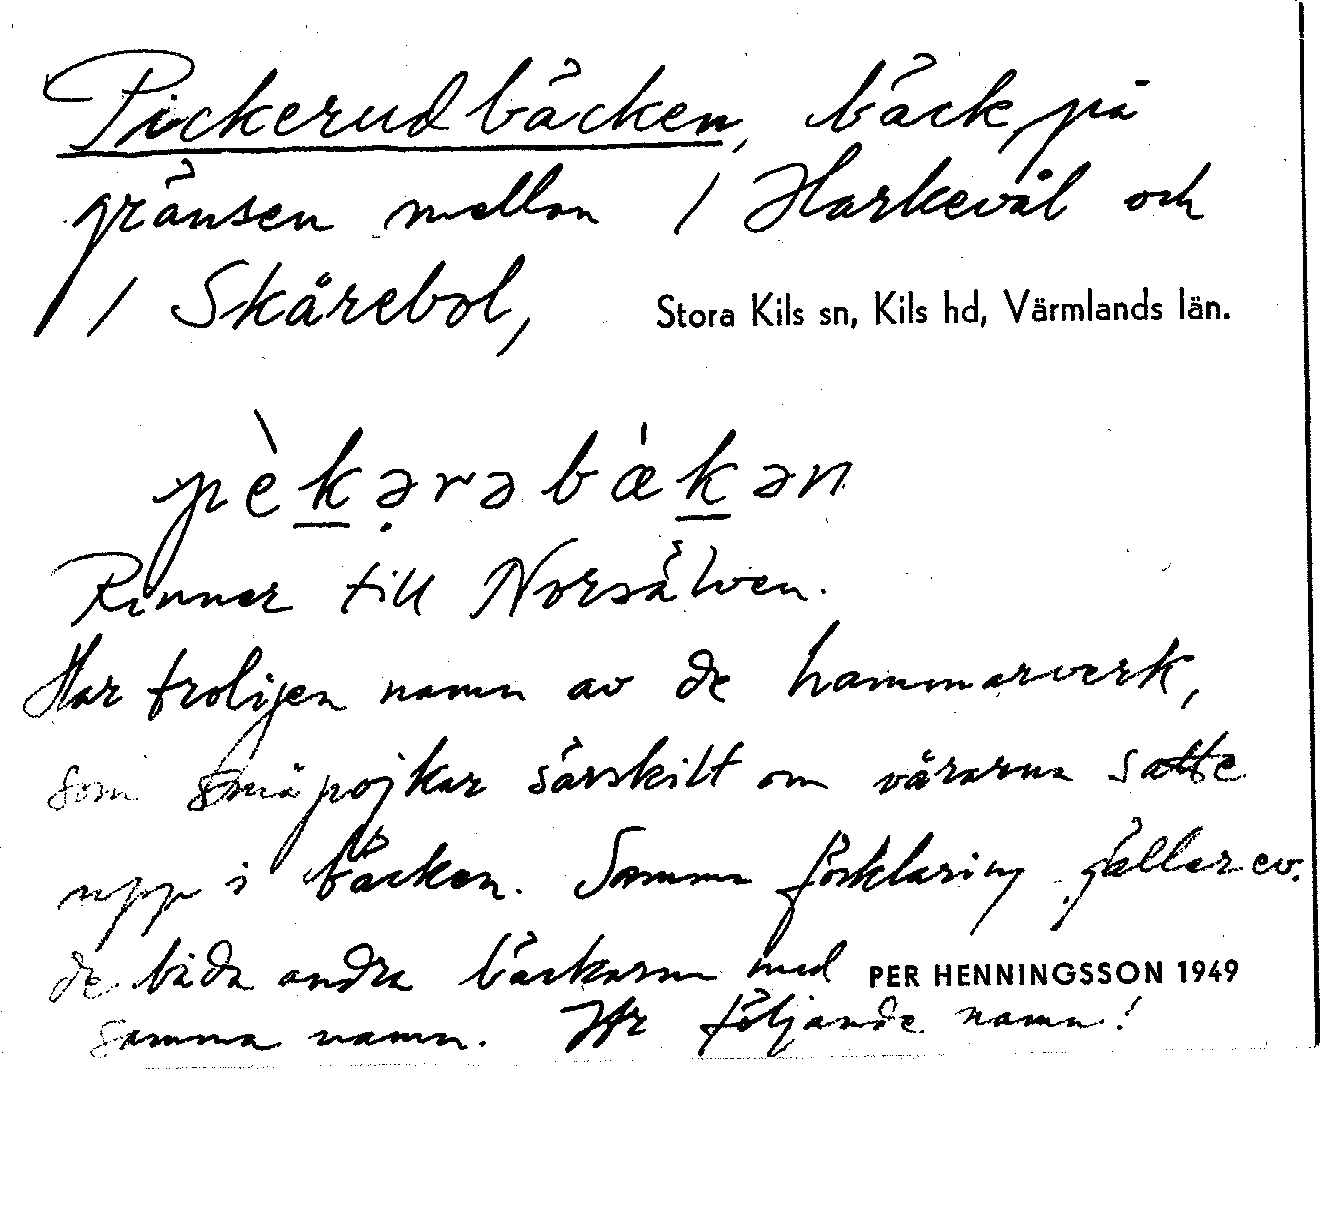 Pickerudbäcken, bäck på
gränsen mellan / Harkevål och
/ Skårebol, Stora Kils sn, Kils hd, Värmlands län.
pèkərəbækən
Rinner till Norsälven.
Har troligen namn av de hammarverk,
som småpojkar särskilt om vårarna satte
upp i bäcken. Samma förklaring gäller ev.
de båda andra bäckarna med PER HENNINGSSON 1949
samma namn. Jfr följande namn!